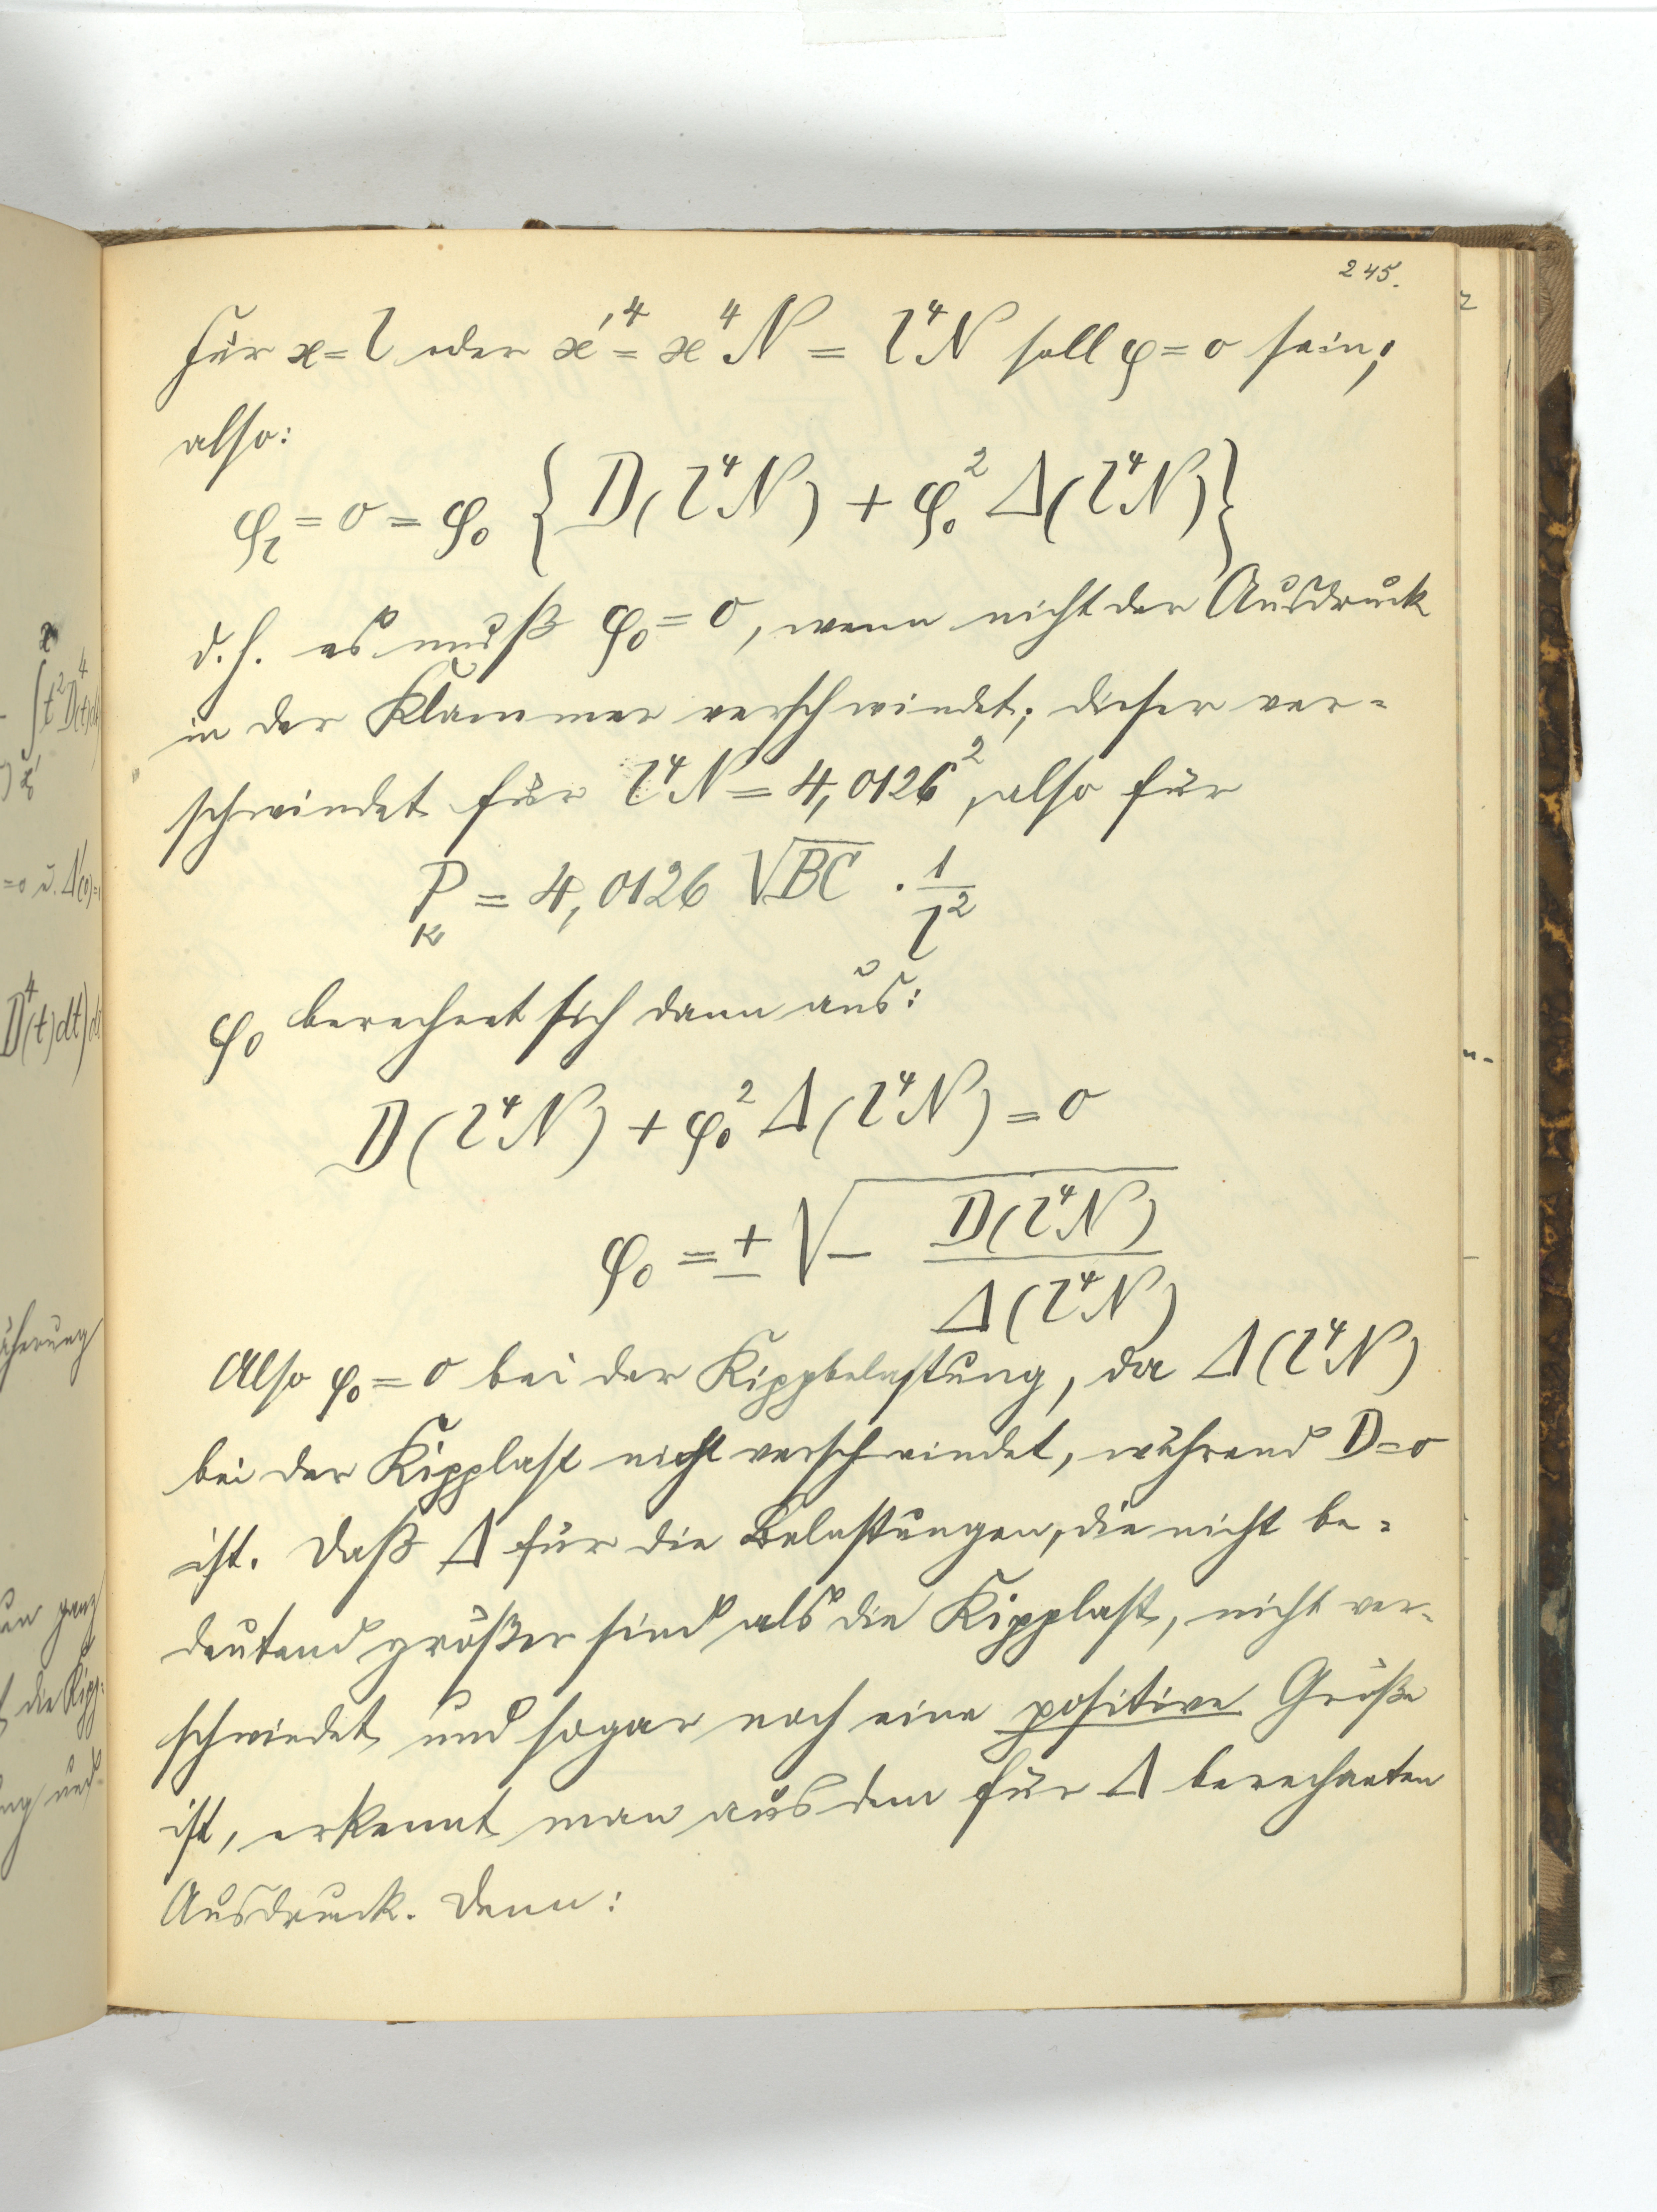 245.
Für x = l oder x'⁴ = x⁴N = l⁴N soll φ = 0 sein;
also:
φ_l = 0 = φ₀ { D(l⁴N) + φ₀² Δ(l⁴N) }
d. h. es muß φ₀ = 0, wenn nicht der Ausdruck
in der Klammer verschwindet; dieser ver-
schwindet für l⁴N = 4,0126², also für
P_k = 4,0126 √BC · 1/l²
φ₀ berechnet sich dann aus:
D(l⁴N) + φ₀² Δ(l⁴N) = 0
φ₀ = ± √ - D(l⁴N) / Δ(l⁴N)
Also φ₀ = 0 bei der Kippbelastung, da Δ(l⁴N)
bei der Kipplast nicht verschwindet, während D = 0
ist. Daß Δ für die Belastungen, die nicht be-
deutend größer sind als die Kipplast, nicht ver-
schwindet und sogar noch eine positive Größe
ist, erkennt man aus dem für Δ berechneten
Ausdruck. Denn: